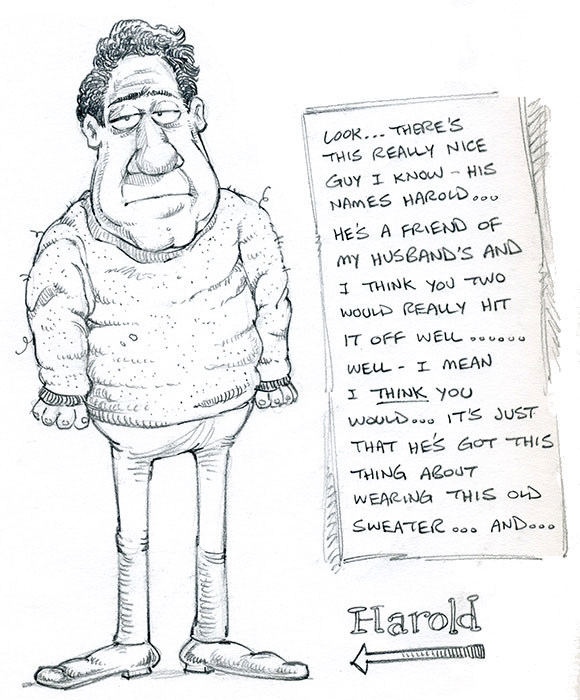 LOOK... THERE'S
THIS REALLY NICE
GUY I KNOW - HIS
NAMES HAROLD...
HE'S A FRIEND OF
MY HUSBAND'S AND
I THINK YOU TWO
WOULD REALLY HIT
IT OFF WELL ......
WELL - I MEAN
I THINK YOU
WOULD... IT'S JUST
THAT HE'S GOT THIS
THING ABOUT
WEARING THIS OLD
SWEATER... AND...
Harold